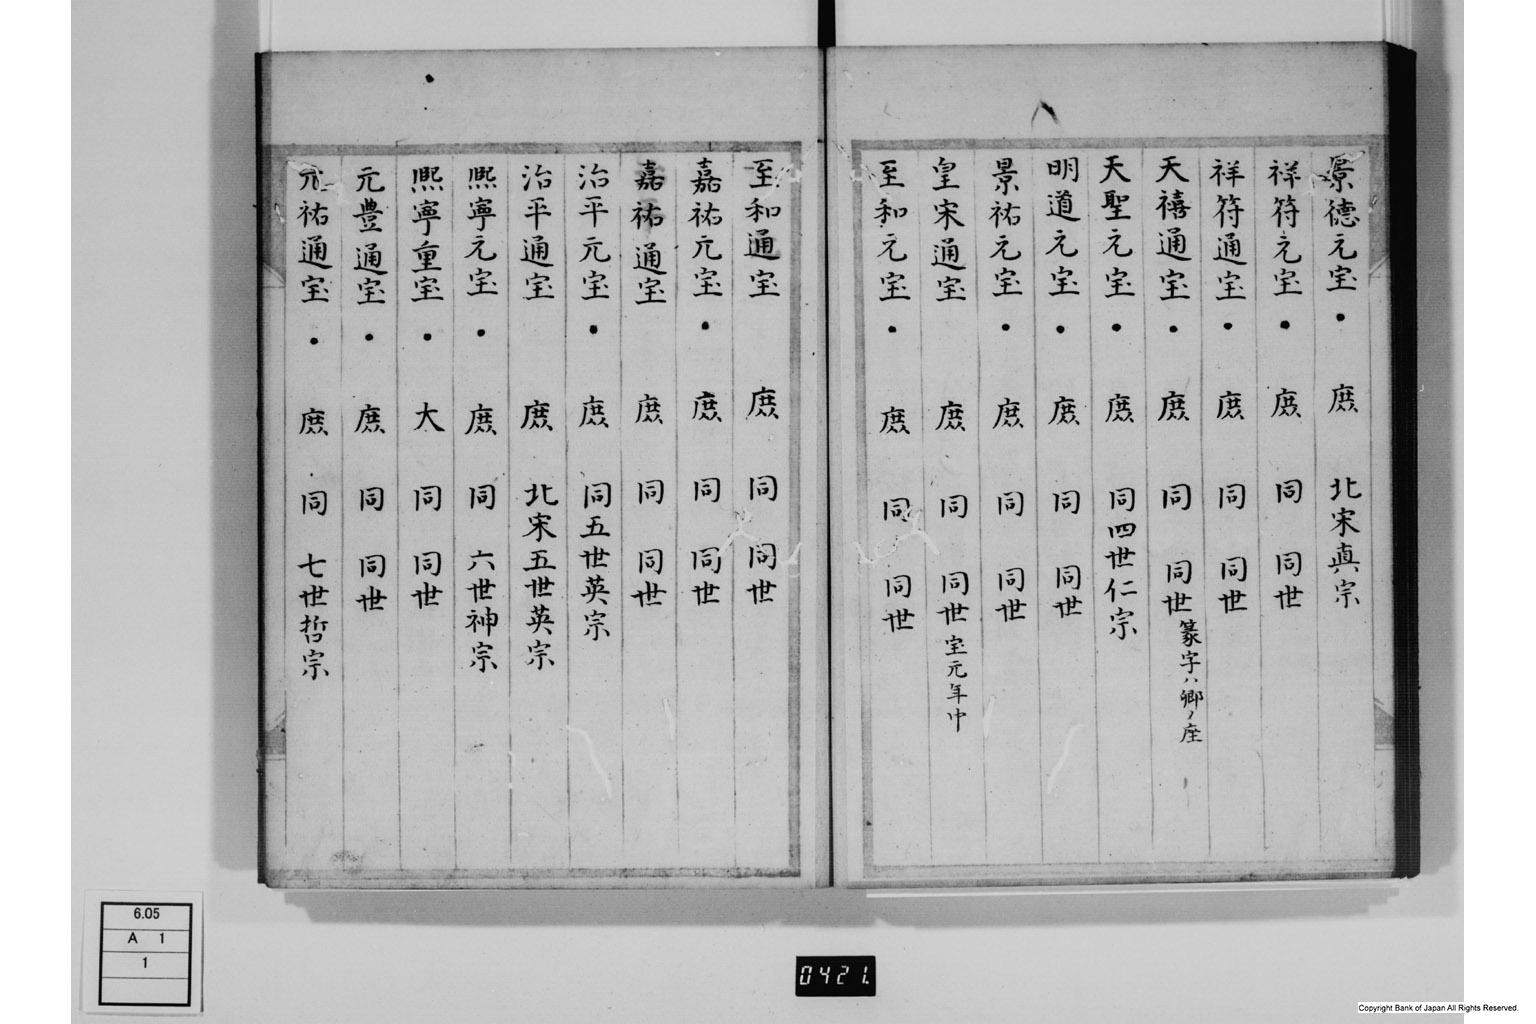 景德元宝・ 庶 北宋真宗
祥符元宝・ 庶 同 同世
祥符通宝・ 庶 同 同世
天禧通宝・ 庶 同 同世 篆字ハ郷ノ座
天聖元宝・ 庶 同四世仁宗
明道元宝・ 庶 同 同世
景祐元宝・ 庶 同 同世
皇宋通宝 庶 同 同世 宝元年中
至和元宝・ 庶 同 同世
至和通宝 庶 同 同世
嘉祐元宝・ 庶 同 同世
嘉祐通宝 庶 同 同世
治平元宝・ 庶 同五世英宗
治平通宝 庶 北宋五世英宗
熈寧元宝・ 庶 同 六世神宗
熈寧重宝・ 大 同 同世
元豊通宝・ 庶 同 同世
元祐通宝・ 庶 同 七世哲宗
6.05
A 1
1
0421.
Copyright Bank of Japan All Rights Reserved.